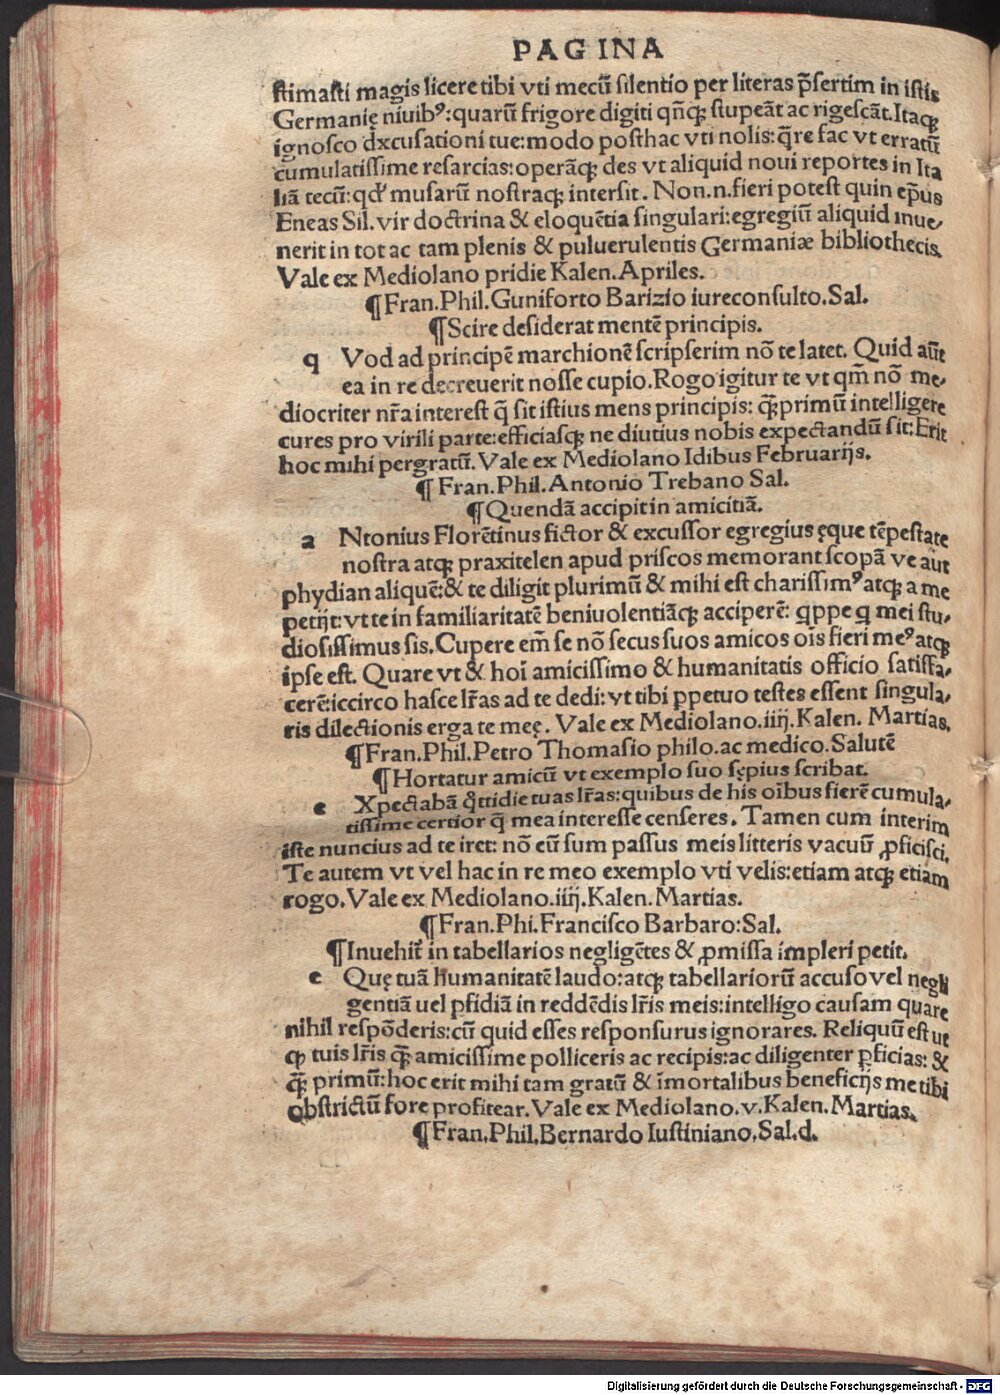 PAGINA
ſtimaſti magis licere tibi vti mecū ſilentio per literas p̄ſertim in iſtis
Germanię niuibꝰ: quarū frigore digiti qn̄qꝫ ſtupeāt ac rigeſcāt. Itaqꝫ
ignoſco excuſationi tue: modo poſthac vti nolis: q̄re fac vt erratū
cumulatiſſime reſarcias: operāqꝫ des vt aliquid noui reportes in Ita
liā tecū: qd' muſarū noſtraqꝫ interſit. Non.n.fieri poteſt quin ep̄us
Eneas Sil. vir doctrina & eloquētia ſingulari: egregiū aliquid inue-
nerit in tot ac tam plenis & puluerulentis Germaniæ bibliothecis.
Vale ex Mediolano pridie Kalen. Apriles.
¶Fran. Phil. Guniforto Barizio iureconſulto. Sal.
¶Scire deſiderat mentē principis.
q Vod ad principē marchionē ſcripſerim nō te latet. Quid aūt
ea in re decreuerit noſſe cupio. Rogo igitur te vt qm̄ nō me-
diocriter nr̄a intereſt q̄ ſit iſtius mens principis: qꝫprimū intelligere
cures pro virili parte: efficiaſqꝫ ne diutius nobis expectandū ſit: Erit
hoc mihi pergratū. Vale ex Mediolano Idibus Februarijs.
¶ Fran. Phil. Antonio Trebano Sal.
¶Quendā accipit in amicitiā.
a Ntonius Florētinus fictor & excuſſor egregius ęque tēpeſtate
noſtra atqꝫ praxitelen apud priſcos memorant ſcopā ve aut
phydian aliquē: & te diligit plurimū & mihi eſt chariſſimꝰ atqꝫ a me
petijt: vt te in familiaritatē beniuolentiāqꝫ acciperē: qppe q mei ſtu-
dioſiſſimus ſis. Cupere em̄ ſe nō ſecus ſuos amicos oīs fieri meꝰ atqꝫ
ipſe eſt. Quare vt & hoī amiciſſimo & humanitatis officio ſatiſfa-
cerē: iccirco haſce lr̄as ad te dedi: vt tibi ꝑpetuo teſtes eſſent ſingula-
ris dilectionis erga te meę. Vale ex Mediolano. iiij. Kalen. Martias.
¶Fran. Phil. Petro Thomaſio philo. ac medico. Salutē
¶Hortatur amicū vt exemplo ſuo ſępius ſcribat.
e Xpectabā q̄ttidie tuas lr̄as: quibus de his oībus fierē cumula-
tiſſime certior q̄ mea intereſſe cenſeres. Tamen cum interim
iſte nuncius ad te iret: nō eū ſum paſſus meis litteris vacuū ꝓficiſci.
Te autem vt vel hac in re meo exemplo vti velis: etiam atqꝫ etiam
rogo. Vale ex Mediolano. iiij. Kalen. Martias.
¶Fran. Phi. Franciſco Barbaro: Sal.
¶Inuehit̄ in tabellarios negligētes & ꝓmiſſa impleri petit.
e Quę tuā humanitatē laudo: atqꝫ tabellariorū accuſo vel negli
gentiā uel ꝑfidiā in reddēdis lr̄is meis: intelligo cauſam quare
nihil reſpōderis: cū quid eſſes reſponſurus ignorares. Reliquū eſt ut
qꝫ tuis lr̄is qꝫ amiciſſime polliceris ac recipis: ac diligenter ꝑficias: &
qꝫ primū: hoc erit mihi tam gratū & īmortalibus beneficijs me tibi
obſtrictū fore profitear. Vale ex Mediolano. v. Kalen. Martias.
¶Fran. Phil. Bernardo Iuſtiniano. Sal. d.
Digitalisierung gefördert durch die Deutsche Forschungsgemeinschaft - DFG